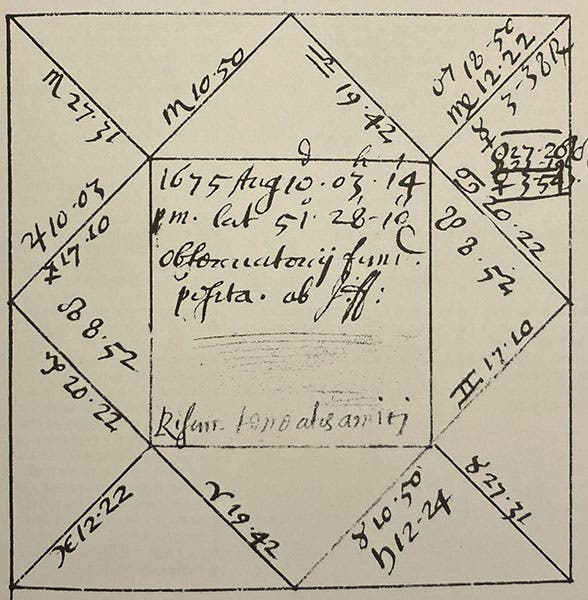 ♏ 27.31
♏ 10.50
♎ 19.42
18.50
♍ 12.22
☿ 3-38
☉ 27.26
♋ 20.22
☋ 8.52
♃ 10.03
♐ 17.10
☊ 8.52
♑ 20.22
d h ,
1675 Aug 10. 03. 14
pm. lat 51°. 28'-10
observatorij
posita. ab J:ff:
Risum teneatis amici
♊ 17.10
♉ 27.31
♉ 10.50
♄ 12.24
♈ 19.42
♓ 12.22